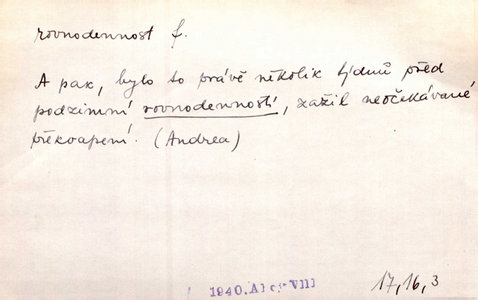 rovnodennost f.
A pak, bylo to právě několik týdnů před
podzimní rovnodenností, zažil neočekávané
překvapení. (Andrea)
1940. VIII
17,16,3